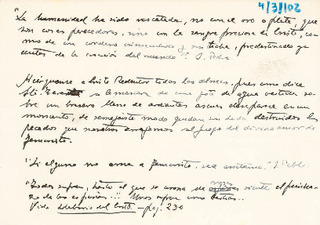 4/3/102
"La humanidad ha sido rescatada, no con el oro o plata, que
son cosas perecederas, sino con la sangre preciosa de Cristo, co-
mo de un cordero inmaculado y sin tacha, predestinado ya
antes de la creación del mundo" S. Pedro
a Cristo Redentor todas las almas, pues como dice
Sta. a semejanza de una gota de agua vertida so-
bre un brasero lleno de ardientes ascuas desaparece en un
momento, de semejante modo quedan destruidos los
pecados que nosotros arrojamos al fuego del divino amor de
Jesucristo.
"Si alguno no ama a Jesucristo, sea anatema" S. Pablo
"Todos sufran, hasta el que se corona de siente el pincha-
zo de las espinas!!! Unos sufren
Vide del Cristo - pag. 230